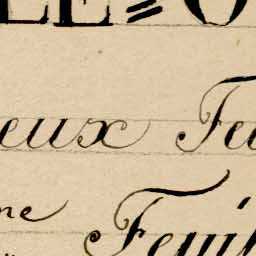 LE=O
eux Feu
me Feuil